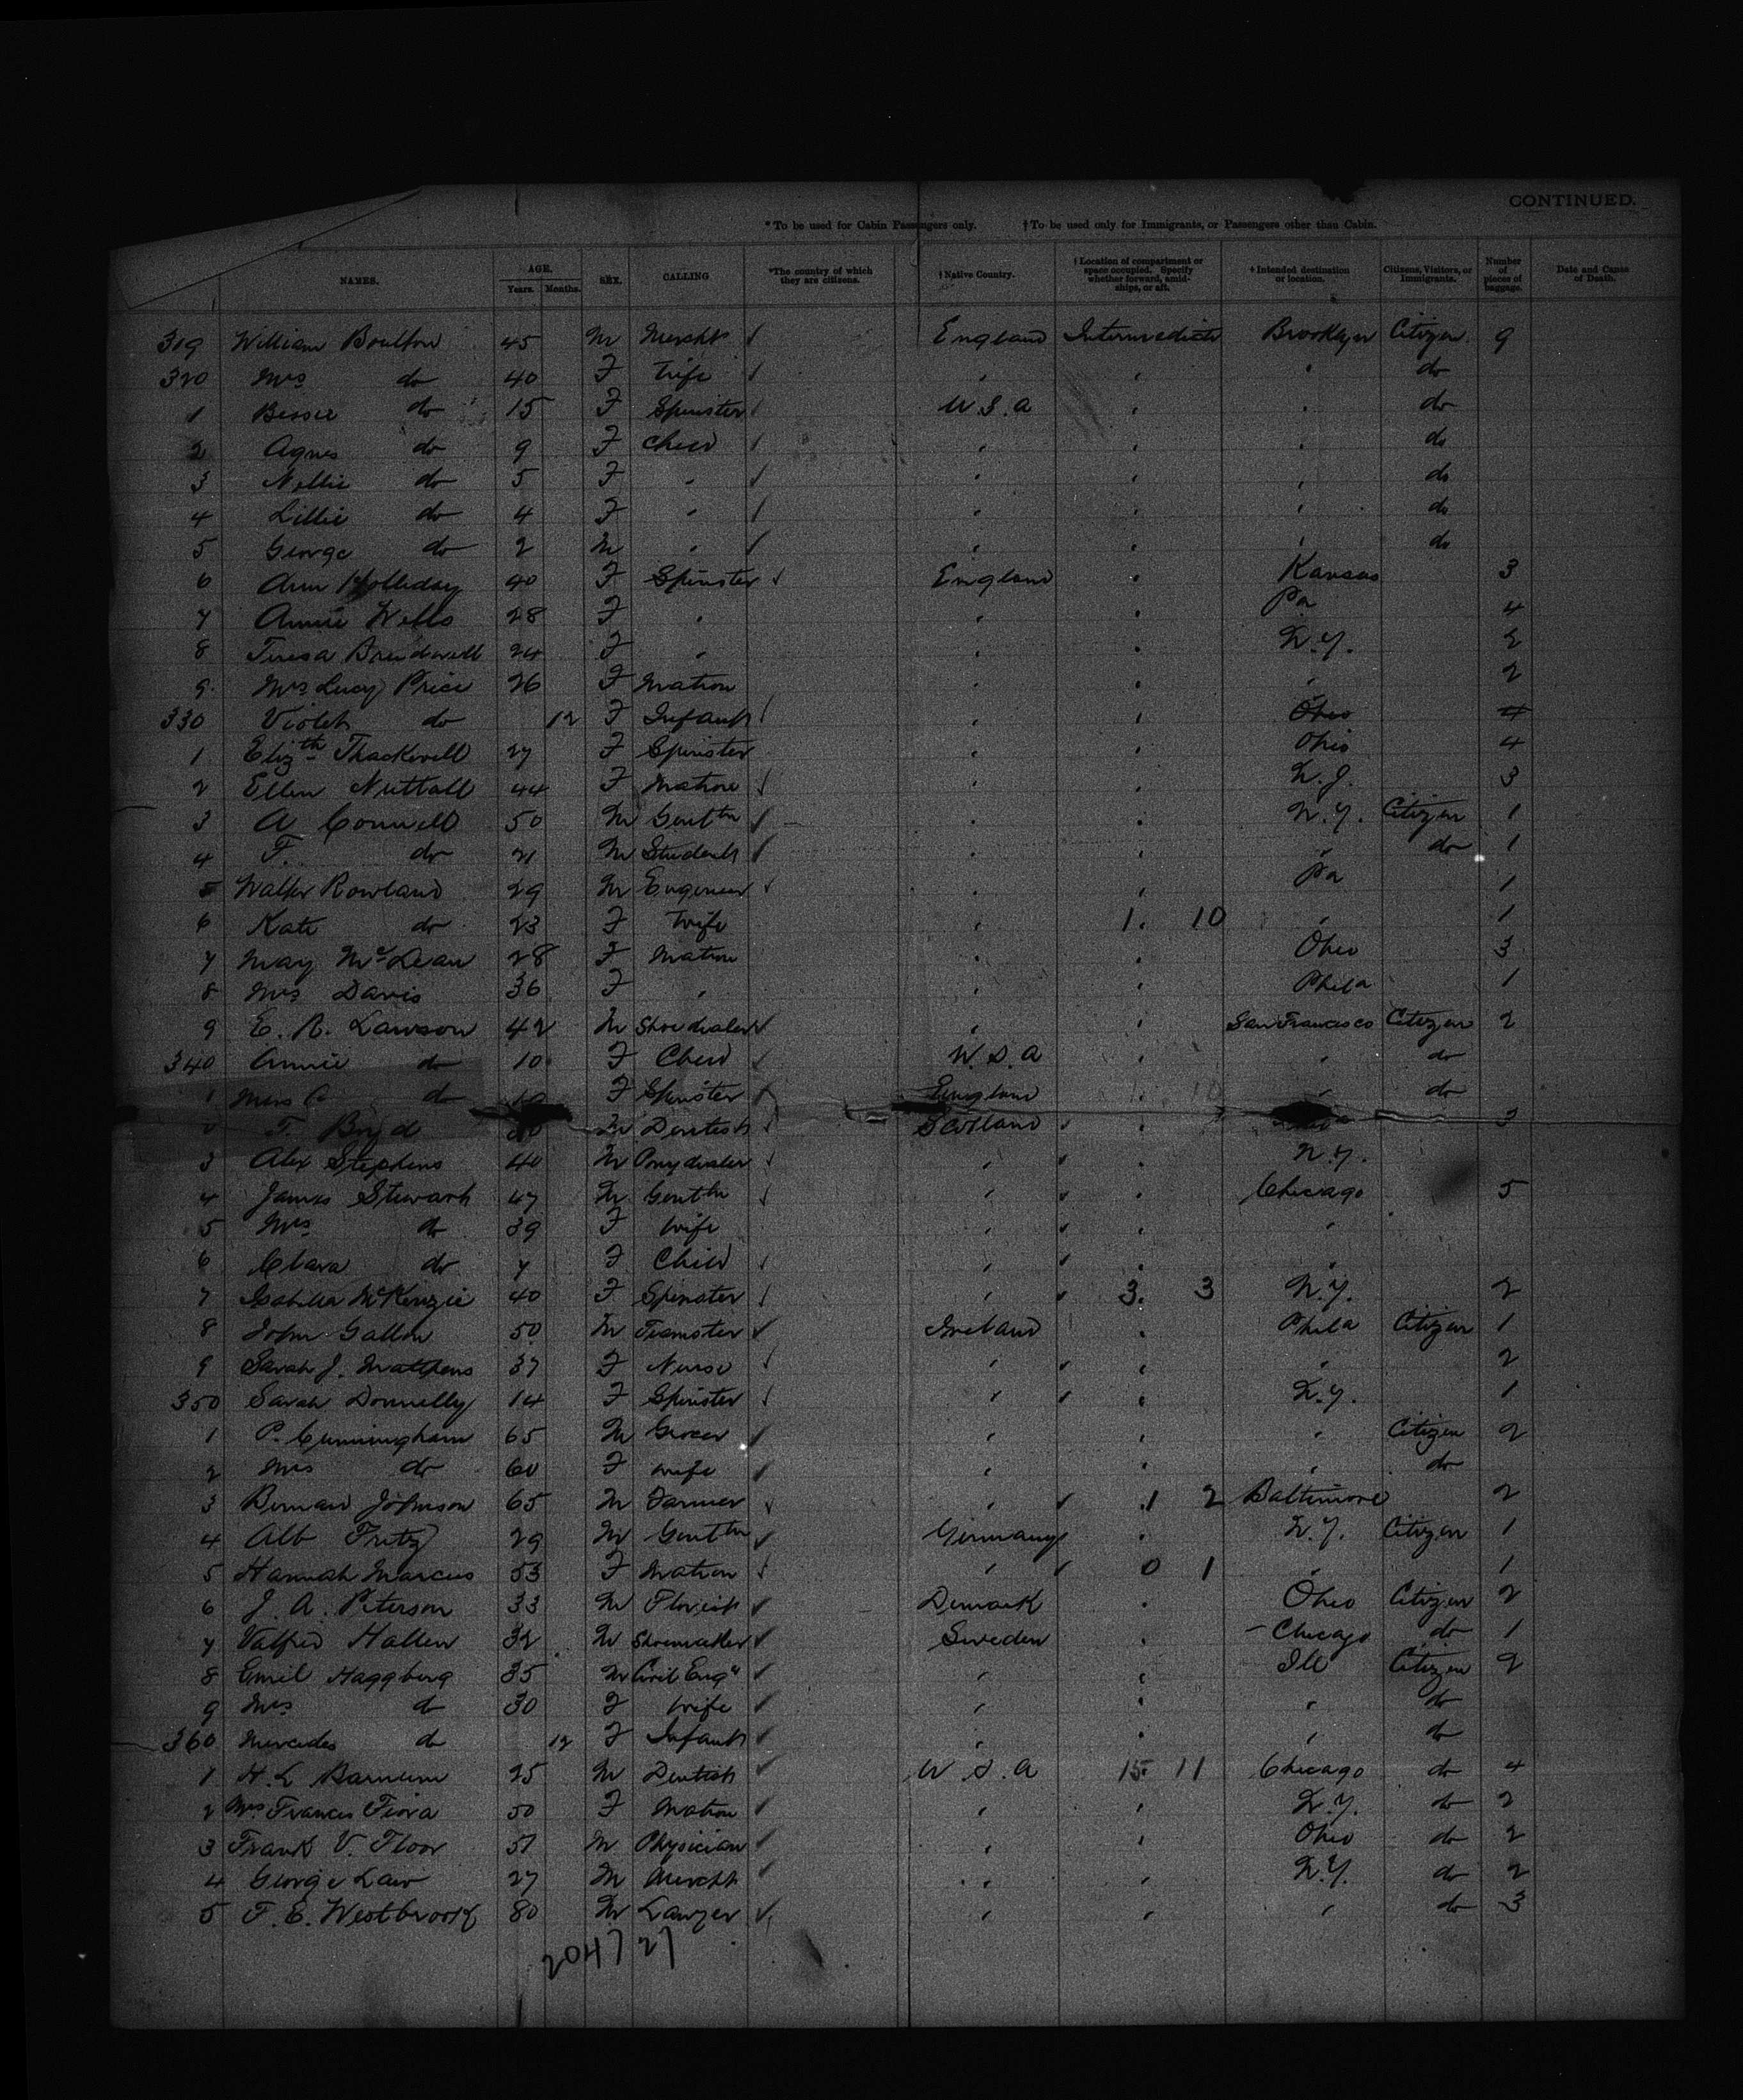 CONTINUED.
* To be used for Cabin Passengers only. † To be used only for Immigrants, or Passengers other than Cabin.
NAMES. AGE. Years. Months. SEX. CALLING *The country of which they are citizens. † Native Country. † Location of compartment or space occupied. Specify whether forward, amidships, or aft. † Intended destination or location. Citizens, Visitors, or Immigrants. Number of pieces of baggage. Date and Cause of Death.
319 William Boulton 45 M Mercht England Intermediate Brooklyn Citizen 9
320 Mrs do 40 F Wife " " " do
1 Bessie do 15 F Spinster U S. A " " do
2 Agnes do 9 F Child " " " do
3 Nellie do 5 F " " " " do
4 Lillie do 4 F " " " " do
5 George do 2 M " " " " do
6 Ann Holliday 40 F Spinster England " Kansas 3
7 Annie Wells 28 F " " " Pa 4
8 Teresa 24 F " " " N.Y. 2
9 Mrs Lucy Price 26 F Matron " " " 2
330 Violet do 12 F Infant " " Ohio 4
1 Elizth 27 F Spinster " " Ohio 4
2 Ellen Nuttall 44 F Matron " " N.J. 3
3 A Connell 50 M Gentln " " N.Y. Citizen 1
4 F. do 21 M Student " " " do 1
5 Walter Rowland 29 M Engineer " " Pa 1
6 Kate do 23 F Wife " 1. 10 " 1
7 May McLean 28 F Matron " " Ohio 3
8 Mrs Davis 36 F " " " Phila 1
9 E. R. Lawson 42 M Shoe dealer " " San Francisco Citizen 2
340 Annie do 10 F Child U. S. A " " do
1 do F Spinster England 1. 10 " do
T. Boyd M Dentist Scotland " 3
3 Alex Stephens 40 M Pony dealer " " N.Y.
4 James Stewart 47 M Gentln " " Chicago 5
5 Mrs do 39 F Wife " " "
6 Clara do 7 F Child " " "
7 Isabella McKenzie 40 F Spinster " 3. 3 N.Y. 2
8 John Gallon 50 M Teamster Ireland " Phila Citizen 1
9 Sarah J. Matthews 37 F Nurse " " " 2
350 Sarah Donnelly 14 F Spinster " " N.Y. 1
1 P. Cunningham 65 M Grocer " " " Citizen 2
2 Mrs do 60 F Wife " " " do
3 Bernard Johnson 65 M Farmer " 1 2 Baltimore 2
4 Alb Fritz 29 M Gentln Germany " N.Y. Citizen 1
5 Hannah Marcus 53 F Matron " 0 1 " 1
6 J. A. Peterson 33 M Florist Denmark " Ohio Citizen 2
7 Valfred Hallen 32 M Shoemaker Sweden " Chicago do 1
8 Emil Haggberg 35 M Civil Engr " " Ill Citizen 2
9 Mrs do 30 F Wife " " " do
360 Mercedes do 12 F Infant " " " do
1 H. L Barnum 25 M Dentist U. S. A 15 11 Chicago do 4
2 Mrs Frances Fiora 50 F Matron " " N.Y. do 2
3 Frank V. Floor 51 M Physician " " Ohio do 2
4 George Law 27 M Mercht " " N.Y. do 2
5 F. E. Westbrook 80 M Lawyer " " " do 3
2047 27